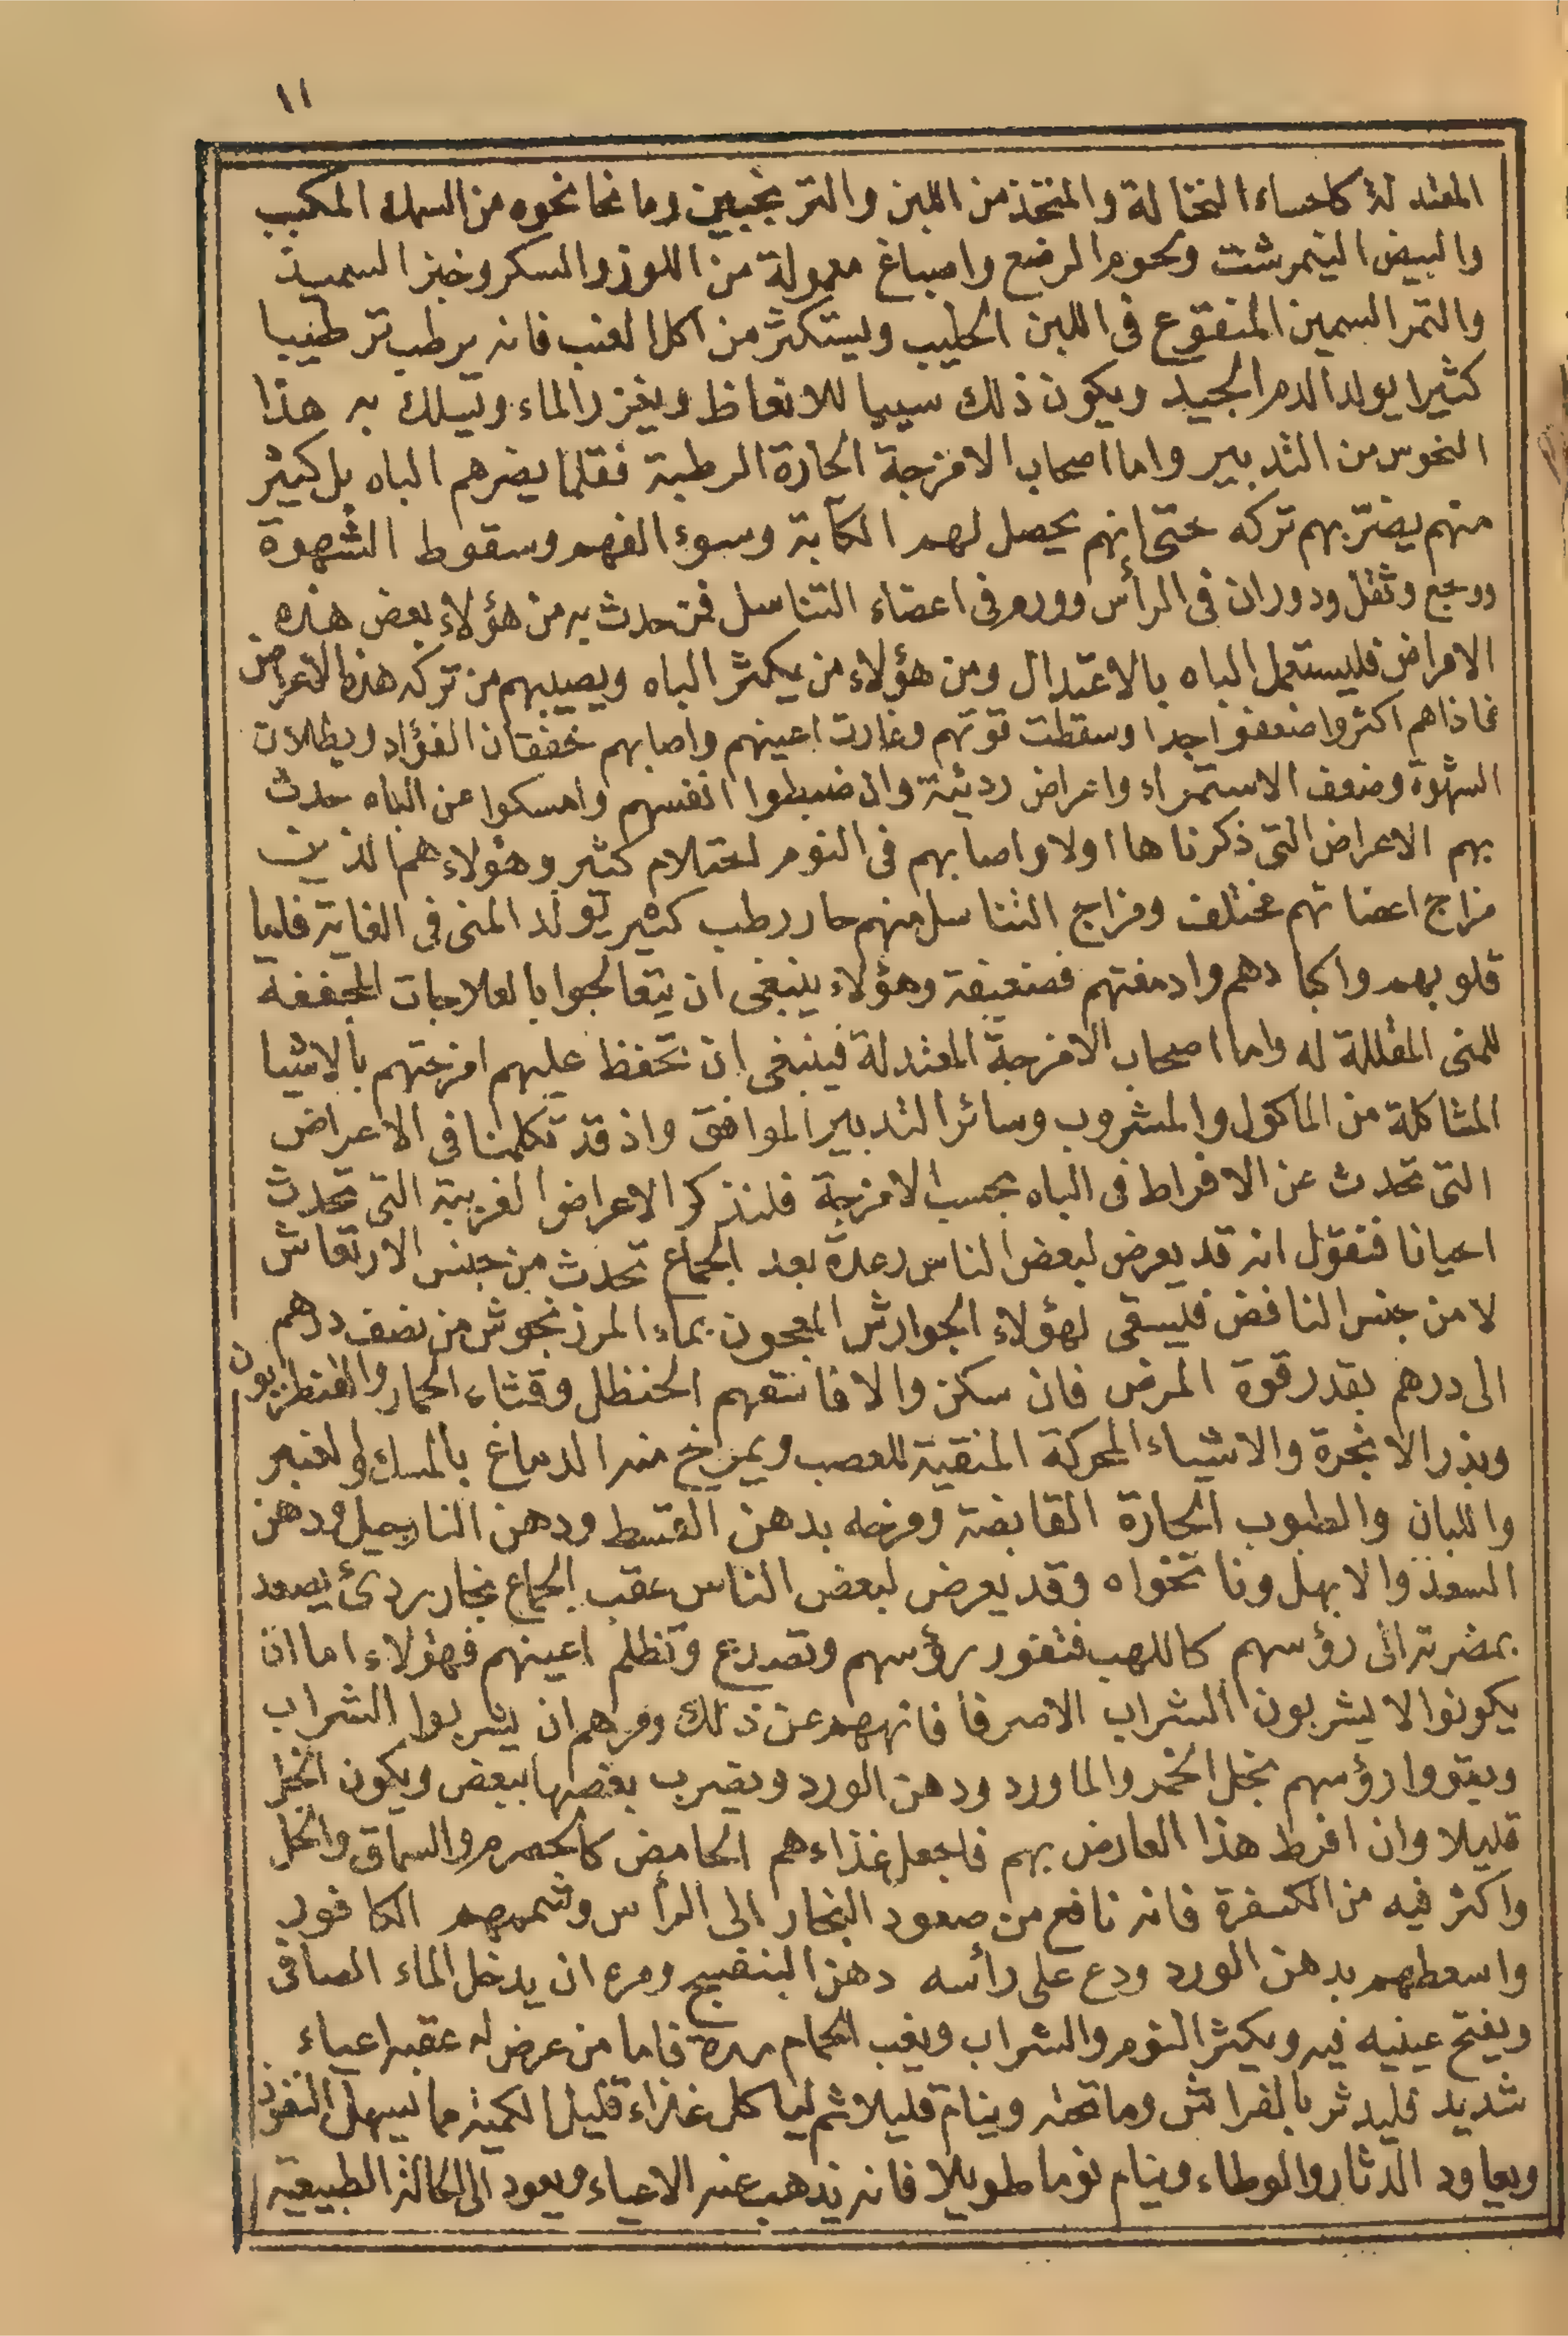 ١١
المعتدلة كاحساء النخالة والمتخذ من اللبن والترنجبين وما نحا نحوه من السمك المكبب
والبيض النيمرشت ولحوم الرضع واصباغ معمولة من اللوز والسكر وخبز السميد
والتمر السمين المنقوع فى اللبن الحليب وليستكثر من اكل العنب فانه يرطب ترطيبا
كثيرا يولد الدم الجيد ويكون ذلك سببا للانعاظ ويغزر الماء ويسلك به هذا
النحو من التدبير واما اصحاب الامزجة الحارة الرطبة فقلما يضرهم الباه بل كثير
منهم يضر بهم تركه حتى انهم يحصل لهم الكآبة وسوء الفهم وسقوط الشهوة
ووجع وثقل ودوران فى الرأس وورم فى اعضاء التناسل فمن حدث به من هؤلاء بعض هذه
الامراض فليستعمل الباه بالاعتدال ومن هؤلاء من يكثر الباه ويصيبهم من تركه هذه الاعراض
فاذاهم اكثروا ضعفوا جدا وسقطت قوتهم وغارت اعينهم واصابهم خفقان الفؤاد وبطلان
الشهوة وضعف الاستمراء واعراض رديئة وان ضبطوا انفسهم وامسكوا عن الباه حدث
بهم الاعراض التى ذكرناها اولا واصابهم فى النوم احتلام كثير وهؤلاء هم الذين
مزاج اعضائهم مختلف ومزاج التناسل منهم حار رطب كثير يولد المنى فى الغاية فاما
قلوبهم واكبادهم وادمغتهم فضعيفة وهؤلاء ينبغى ان يتعالجوا بالعلاجات المجففة
للمنى المقللة له واما اصحاب الامزجة المعتدلة فينبغى ان تحفظ عليهم امزجتهم بالاشيا
المشاكلة من الماكول والمشروب وسائر التدبير الموافق واذ قد تكلمنا فى الاعراض
التى تحدث عن الافراط فى الباه بحسب الامزجة فلنذكر الاعراض الغريبة التى تحدث
احيانا فنقول انه قد يعرض لبعض الناس رعدة بعد الجماع تحدث من جنس الارتعاش
لا من جنس النافض فليسقى لهؤلاء الجوارش المعجون بماء المرزنجوش من نصف درهم
الى درهم بقدر قوة المرض فان سكن والا فانقهم الحنظل وقثاء الحمار والقنطريون
وبذر الانجرة والاشياء المحركة المنقية للعصب ويمرخ منه الدماغ بالمسك والعنبر
واللبان والطبوب الحارة القابضة ومرخه بدهن القسط ودهن النارجيل ودهن
السعد والابهل ونانخواه وقد يعرض لبعض الناس عقب الجماع بخار ردئ يصعد
بمضرته الى رؤسهم كاللهب فتفور رؤسهم وتصدع وتظلم اعينهم فهؤلاء اما ان
يكونوا لا يشربون الشراب الاصرفا فانههم عن ذلك ومرهم ان يشربوا الشراب
ويقووا رؤسهم بخل الخمر والماورد ودهن الورد ويضرب بعضها ببعض ويكون الخل
قليلا وان افرط هذا العارض بهم فاجعل غذاءهم الحامض كالحصرم والسماق والخل
واكثر فيه من الكسفرة فانه نافع من صعود البخار الى الرأس وشممهم الكافور
واسعطهم بدهن الورد ودع على رأسه دهن البنفسج ومره ان يدخل الماء الصافى
ويفتح عينيه فيه ويكثر النوم والشراب ويغب الحمام مرة فاما من عرض له عقبه اعياء
شديد فليدثر بالفراش وما تحته وينام قليلا ثم لياكل غذاء قليل الكمية مما يسهل النفوذ
ويعاود الدثار والوطاء وينام نوما طويلا فانه يذهب عنه الاعياء ويعود الى الحالة الطبيعية